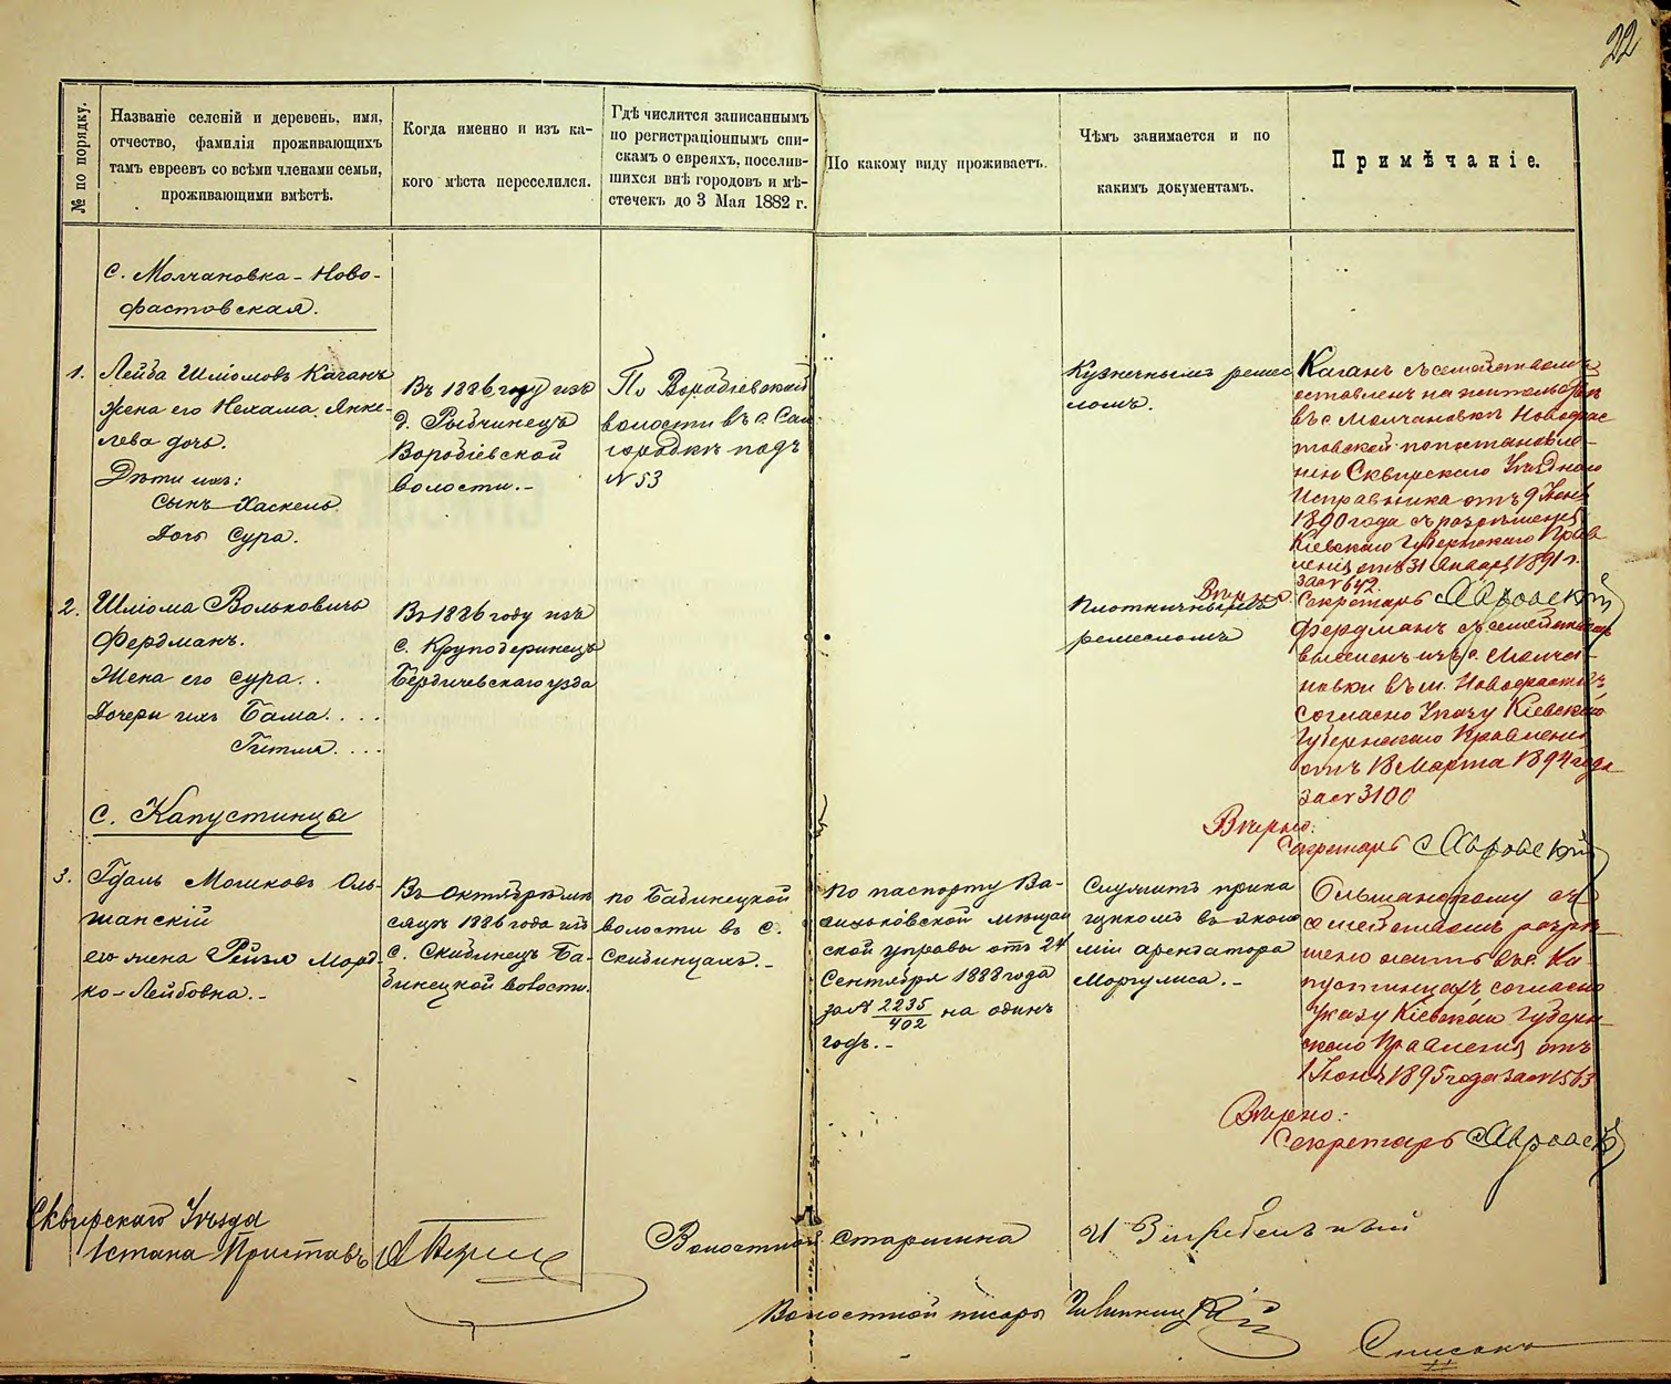 22
№ по порядку.
Названіе селеній и деревень, имя,
отчество, фамилія проживающихъ
тамъ евреевъ со всѣми членами семьи,
проживающими вмѣстѣ.
Когда именно и изъ ка-
кого мѣста переселился.
Гдѣ числится записаннымъ
по регистраціоннымъ спи-
скамъ о евреяхъ, поселив-
шихся внѣ городовъ и мѣ-
стечекъ до 3 Мая 1882 г.
По какому виду проживаетъ.
Чѣмъ занимается и по
какимъ документамъ.
Примѣчаніе.
с. Молчановка-Ново-
фастовская.
1.
Лейба Шліомовъ Каганъ
жена его Нехама Янке-
лева дочь.
Дѣти ихъ:
Сынъ Хаскель
Дочь Сура.
Въ 1886 году изъ
д. Рыбчинецъ
Воробіевской
волости.-
По Воробіевской
волости въ с. Сам
городкѣ подъ
№ 53
Кузнечнымъ ремес
ломъ.
Каганъ съ семействомъ
оставленъ на жительство
въ с. Молчановкѣ Новофас
товской по постановле-
нію Сквирскаго Уѣзднаго
Исправника отъ 9 Іюня
1890 года съ разрѣшенія
Кіевскаго Губернскаго Прав
ленія отъ 31 Января 1891 г.
за № 642.
Вѣрно:
Секретарь
2.
Шліома Вольковичъ
Фердманъ.
Жена его Сура..
Дочери ихъ Бама....
Гитля....
Въ 1886 году изъ
с. Круподеринецъ
Бердичевскаго уѣзда
Плотничнымъ
ремесломъ
Фердманъ съ семействомъ
выселенъ изъ с. Молча-
новки въ м. Новофастовъ
согласно Указу Кіевскаго
Губернскаго Правленія
отъ 18 Марта 1894 года
за № 3100
Вѣрно:
Секретарь
с. Капустинцы
3.
Гдаль Мошковъ Оль-
шанскій
его жена Рейзя Морд-
ко-Лейбовна.-
Въ Октябрѣ мѣ
сяцѣ 1886 года изъ
с. Скибинецъ Ба-
бинецкой волости.
по Бабинецкой
волости въ с.
Скибинцахъ.-
По паспорту Ва-
сильковской мѣщан
ской управы отъ 24
Сентября 1888 года
за № 2235/402 на одинъ
годъ.-
Служитъ прика
щикомъ въ эконо
міи арендатора
Моргулиса.-
Ольшанскому съ
семействомъ разрѣ-
шено жить въ с. Ка-
пустинцахъ согласно
Указу Кіевскаго Губерн-
скаго Правленія отъ
1 Іюня 1895 года за № 1563
Вѣрно:
Секретарь
Сквирскаго Уѣзда
1 стана Приставъ
Волостной Старшина
Волостной писарь
Списокъ